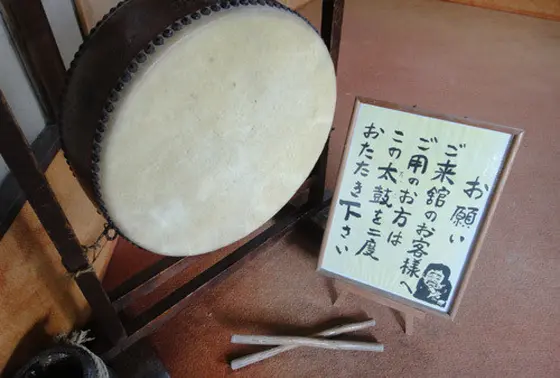 お願い
ご来館のお客様へ
ご用のお方は
この太鼓を二度
おたたき下さい